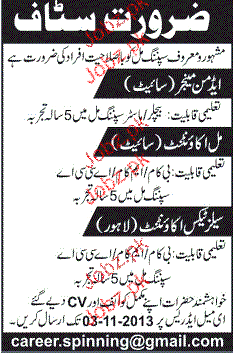 ضرورت سٹاف
مشہور و معروف سپننگ مل کو باصلاحیت افراد کی ضرورت ہے
ایڈمن منیجر (سائیٹ)
تعلیمی قابلیت: بیچلر/ماسٹر سپننگ مل میں 5 سالہ تجربہ
مل اکاؤنٹنٹ (سائیٹ)
تعلیمی قابلیت: بی کام/ایم کام/اے سی سی اے
سپننگ مل میں 5 سالہ تجربہ
سیلز ٹیکس اکاؤنٹنٹ (لاہور)
تعلیمی قابلیت: بی کام/ایم کام/اے سی سی اے
سپننگ مل میں 5 سالہ تجربہ
خواہشمند حضرات اپنے مکمل کوائف اور CV دیے گئے
ای میل ایڈریس پر 03-11-2013 تک ارسال کریں۔
career.spinning@gmail.com